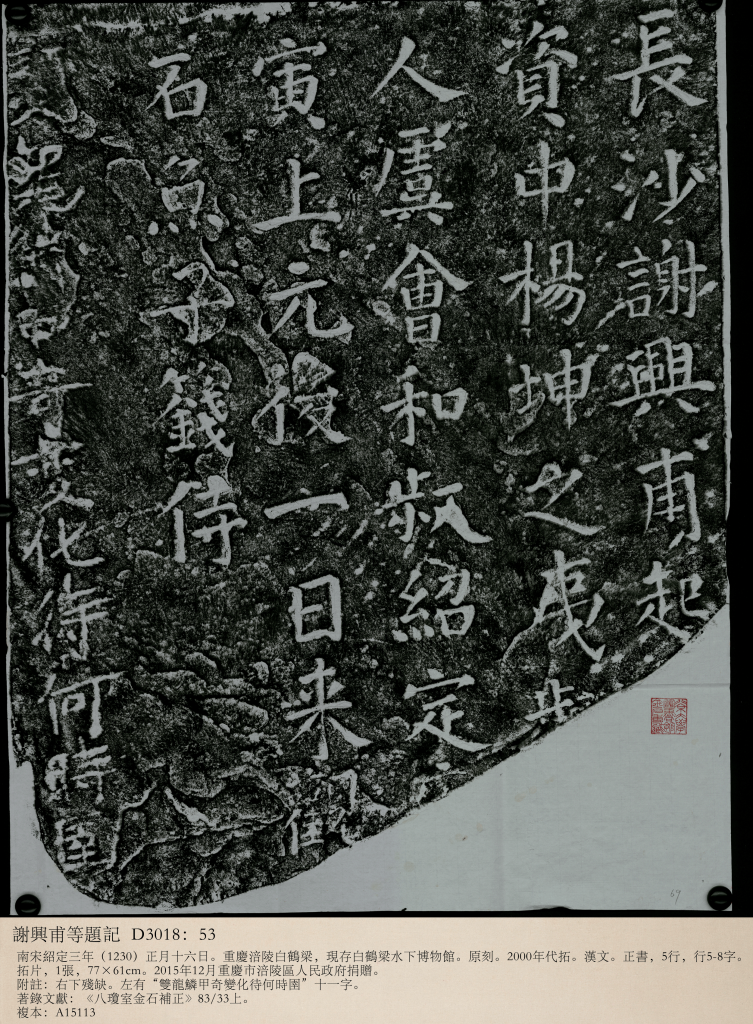 長沙謝興甫起
資中楊坤之夷
人虞會和叔紹定
寅上元後一日来觀
石魚子籛侍
鱗甲奇变化待何時
謝興甫等題記 D3018：53
南宋紹定三年（1230）正月十六日。重慶涪陵白鶴梁，現存白鶴梁水下博物館。原刻。2000年代拓。漢文。正書，5行，行5-8字。
拓片，1張，77×61cm。2015年12月重慶市涪陵區人民政府捐贈。
附註：右下殘缺。左有“雙龍鱗甲奇變化待何時園”十一字。
著錄文獻：《八瓊室金石補正》83/33上。
複本：A15113